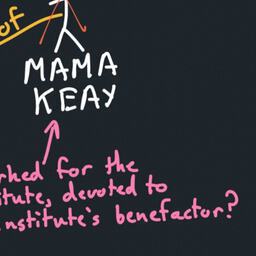 of
MAMA
KEAY
rked for the
itute, devoted to
nstitute's benefactor?